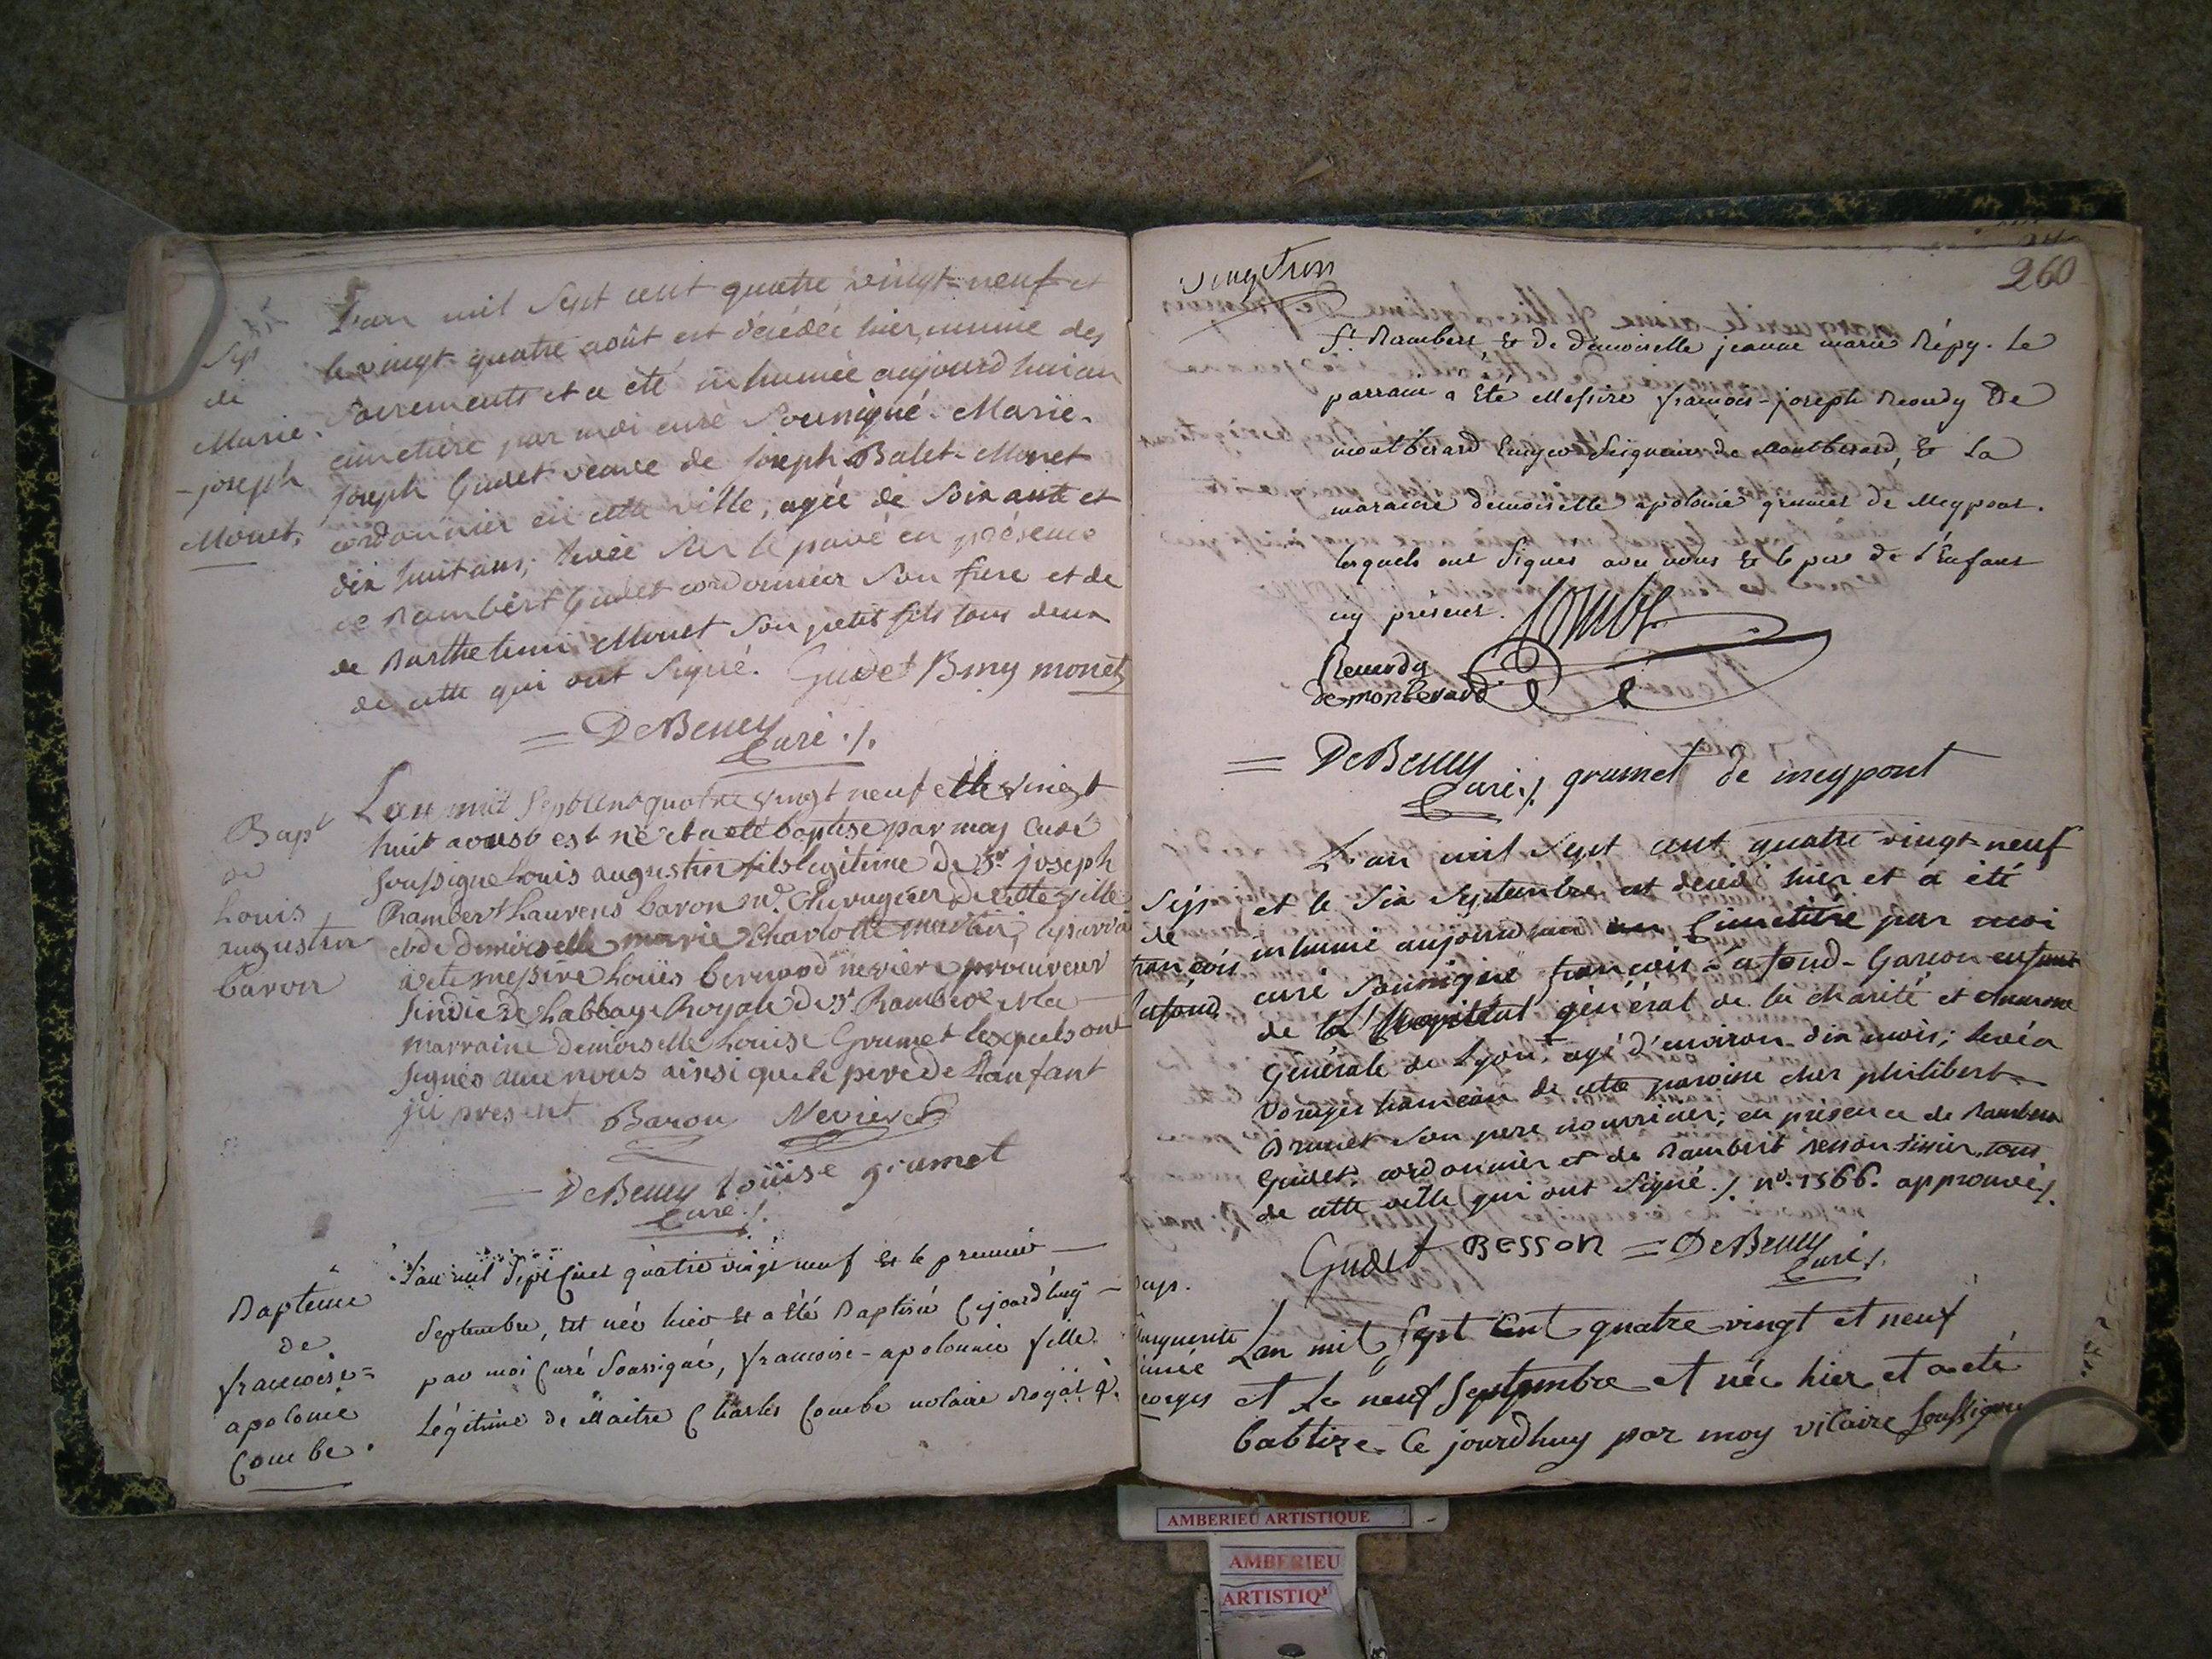 Sép
de
Marie
-joseph
Monet.
L'an mil sept cent quatre vingt-neuf et
le vingt quatre août est décédée hier, munie des
sacrements et a été inhumée aujourd'hui au
cimetière par moi curé soussigné. Marie-
joseph Gudet veuve de joseph Balet-Monet
cordonnier en cette ville, agée de soixante et
dix huit ans; levée sur le pavé en présence
de Rambert Gudet cordonnier son frere et de
de Barthelemi Monet son petit fils tous deux
de cette qui ont signé. Gudet Bmy monet
= DeBeney
Curé ./.
Bapt
de
Louis
augustin
baron
Lan mil sept cent quatre vingt neuf et le vingt
huit aoust est né et a eté baptise par moy Curé
soussigne Louis augustin fils legitime de Sr. joseph
Rambert Laurens baron md. Chirugien de cette ville
et de demoiselle marie Charlotte martin; le parrain
a eté messire Loüis bernard nevière procureur
sindic de Labbaye Royale de St Rambert et la
marraine demoiselle Louise Grumet lesquels ont
signés avec nous ainsi que le pere de Lanfant
ici present Baron Nevieres
= DeBeney loüise grumet
Curé ./.
Bapteme
de
françoise=
apolonie
Combe.
L'an mil sept cent quatre vingt neuf & le premier
Septembre, est née hier & a été Baptisée cejourd'huy
par moi Curé Soussigné, françoise-apolonnie fille
Légitime de Maitre Charles Combe notaire Royal à
vingt un
260
St. Rambert, & de demoiselle jeanne marie Répy. Le
parrain a été Messire françois-joseph Reoudy De
montberard Ecuyer Seigneur de Montberard, & La
maraine demoiselle apolonie grumet de Meypont.
lesquels ont signés avec nous & le pere de l'Enfant
icy présent. Combe
Reuerdy
de montberard
= DeBeney
Curé ./. grumet de meypont
Sép
de
françois
Lafond
L'an mil sept cent quatre vingt-neuf
et le six septembre est décédé hier et a été
inhumé aujourd'hui au Cimetière par moi
curé soussigné françois-Lafond-Garçon enfant
de L'hopital général de la charité et aumone
générale de Lyon, agé d'environ dix mois; levé a
Vorages hameau de cette paroisse chez philibert
Brunet son pere nourricier; en présence de Rambert
Gudet. cordonnier et de Rambert Besson tissier, tous
de cette ville qui ont signé ./. no. 1366. approuvé ./.
Gudet BESSON = DeBeney
Curé ./.
Bap.
Marguerite
aimée
Georges
Lan mil sept cent quatre vingt et neuf
et le neuf septembre et née hier et a eté
babtizé Ce jourdhuy par moy vicaire soussigné
AMBERIEU ARTISTIQUE
AMBERIEU
ARTISTIQ